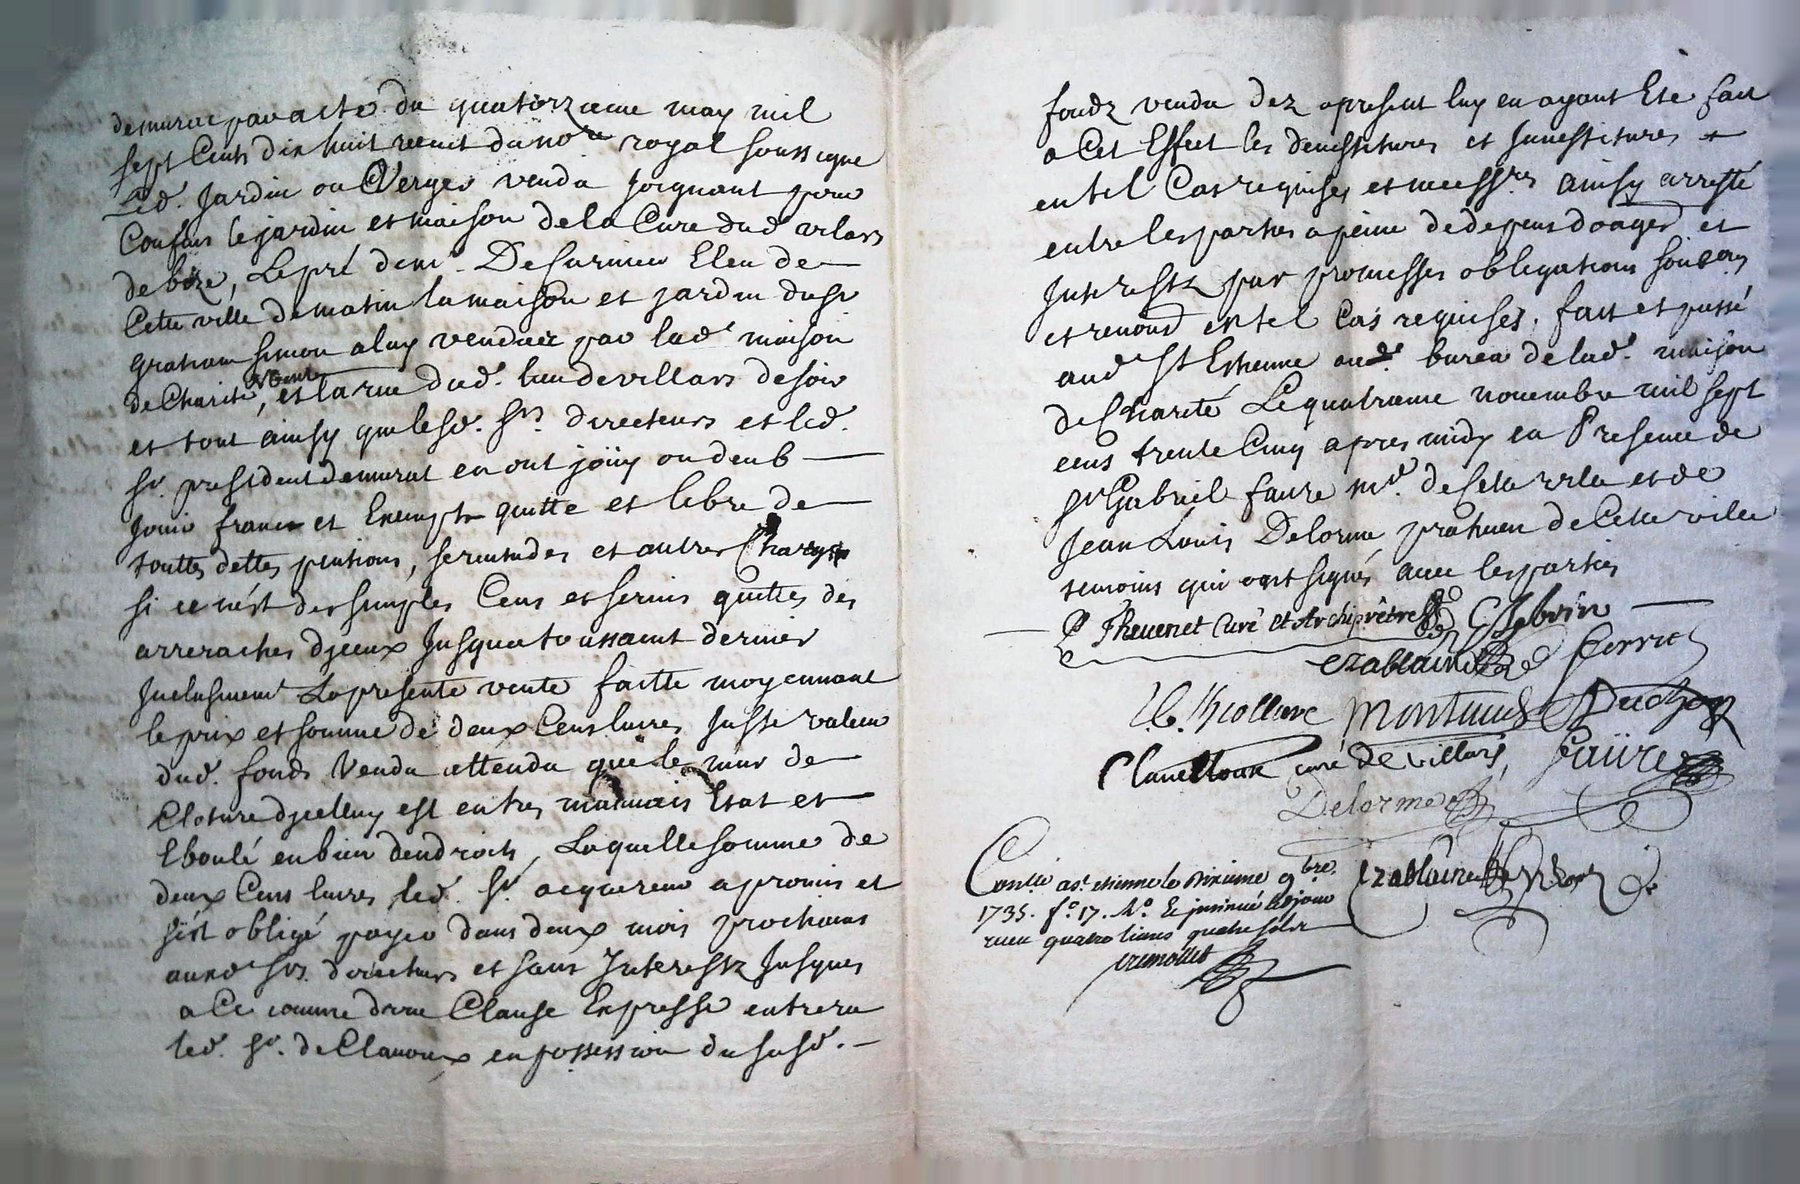 demurat par acte du quatorzieme may mil
sept Cents dix huit receu du no.re royal soussigne
Led. Jardin ou Verger vendu joignant pour
Confins le jardin et maison de la Cure dud. vilars
de bize, Le pré de mr. De Eleu de
Cette ville de matin la maison et jardin du sr
gratian simon a luy vendue par lad. maison
de Charité, et la rue dud. lieu de villars de soir
et tout ainsy que lesd. srs. directeurs et led.
sr. president demurat en ont joüy ou deub
Jouir franc et Exempt quitte et libre de
touttes dettes pentions, seruitudes et autres Charges
si ce n'est des simples Cens et seruis quittes des
arrerages d'jceux Jusqua toussaint dernier
Jnclusiuemt. La presente vente faitte moyennant
le prix et somme de deux Cens liures Juste valeur
dud. fonds Vendu attendu que le mur de
Cloture d'jcelluy est en tres mauuais Etat et
Eboulé en bien d'endroits, Laquelle somme de
deux Cens liures led. sr. acquereur a promis et
s'est obligé payer dans deux mois prochains
auxd. srs. directeurs et sans Interestz Jusques
a Ce comme d'une Clause Expresse entrera
led. sr. de Clauoux en possession du susd.
fondz vendu dez a present luy en ayant Eté fait
a Cet Effect les deuestitures et Jnuestitures
en tel Cas requises et necessres ainsy arresté
entre les parties a peine de depens domages et
Jnterestz par promesses obligations
et renond en tel Cas requises. fait et passé
aud. St Estienne au bureau de lad. maison
de Charité Le quatrieme nouembre mil sept
cens trente Cinq apres midy en Presence de
sr Gabriel faure md. de Cette ville et de
Jean Louis Delorme praticien de Cette ville
temoins qui ont signés auec les parties
Theuenet Curé et Archiprêtre
Ezablaine

Montaud
Clauelloux curé de villars, faure
Delorme
Conllé a st. etienne le sixieme 9bre.
1735. fo. 17. No. & jnsinué led jour
receu quatre liures quatre sols